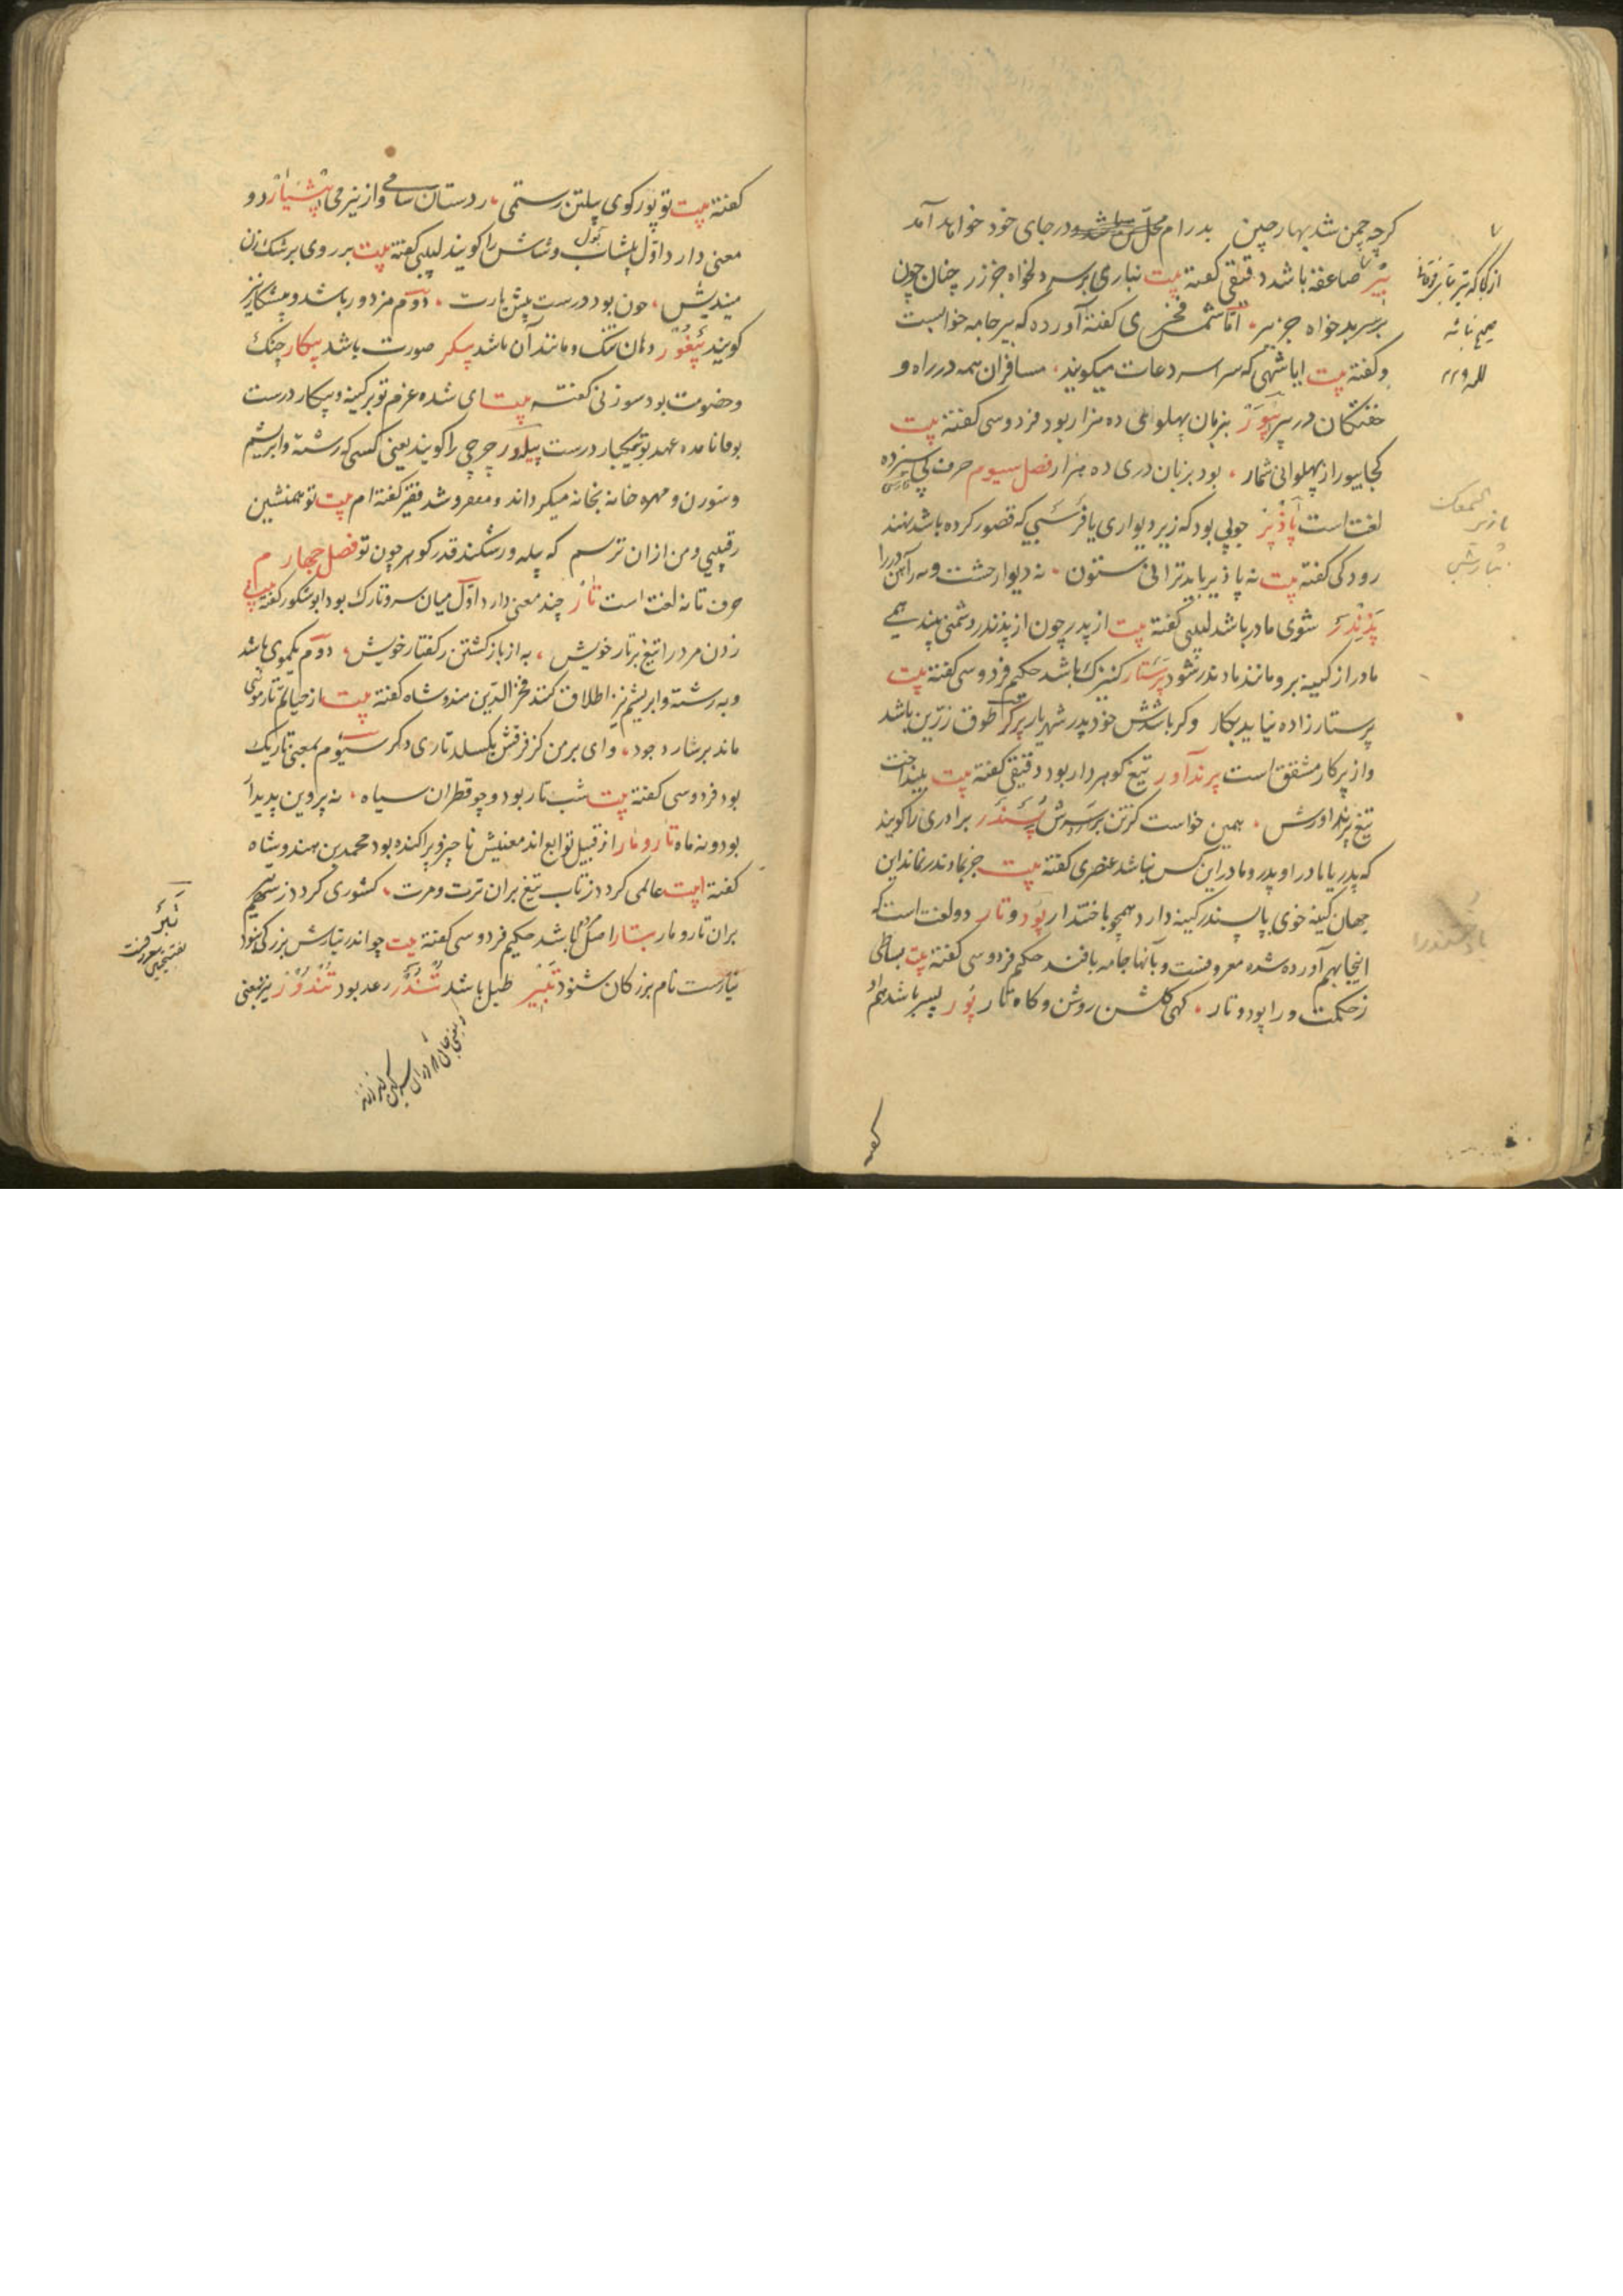 کرچه چمن شد بهار چین بدرام محل در جای خود خواهد آمد
بیر صاعقه باشد دقیقی کفته بیت نباری بر سر دلخواه جز زر چنان چون
بر سر بدخواه جز بیر اما شمس فخری کفته آورده که بیر جامه خوابست
و کفته بیت ایا شهی که سراسر دعات میکویند مسافران همه در راه و
خفتکان در بیر بیور بزبان پهلوانی ده هزار بود فردوسی کفته بیت
کجا بیور از پهلوانی شمار بود بر زبان دری ده هزار فصل سیوم حرف پی سیزده
لغت است پاذیر چوبی بود که زیر دیواری یا که قصور کرده باشد نهند
رودکی کفته بیت نه پاذیر باید ترا نی ستون نه دیوار خشت و نه آهن درا
پذندر شوی مادر باشد لبیبی کفته بیت از پدر چون از پذندر دشمنی بیند همی
مادر از کینه برو مانند مادندر شود پرستار کنیزک باشد حکیم فردوسی کفته بیت
پرستارزاده نیاید بکار وکر باشدش خود پدر شهریار پرکر طوق زرین باشد
و از پرکار مشتق است پرندآور تیغ کوهردار بود دقیقی کفته بیت بینداخت
تیغ پرنداورش همین خواست کز تن برد سرش پسندر برادری را کویند
که پدر یا مادر او پدر و مادر این کس نباشد عنصری کفته بیت جز بمادندر نماند این
جهان کینه خوی با پسندر کینه دارد همچو با دختندرا پود و تار دو لغت است که
اینجا بهم آورده شده معروفست و بآنها جامه بافند حکیم فردوسی کفته بیت بساطی
ز حکمت ورا پود و تار کهی کلشن روشن و کاه تار پور پسر باشد هم او
کفته
کفته بیت تو پور کوی پیلتن رستمی ز دستان سامی و از نیرمی پیشیار دو
معنی دارد اول پیشاب بول و شاش را کویند لبیبی کفته بیت بر روی پزشک زن
میندیش چون بود درست پیشیارت دوم مزدور باشد و پیشکار نیز
کویند پیغور دهان تنک و مانند آن باشد پیکر صورت باشد پیکار جنک
و خصومت بود سوزنی کفته بیت ای شده عزم تو بر کینه و پیکار درست
عهد تو بیکبار درست پیلور چرچی را کویند یعنی کسی که رشته و ابریشم
و سوزن و مهره خانه بخانه میکرداند و میفروشد فقیر کفته ام بیت تو همنشین
رقیبی و من ازان ترسم که پیله ور شکند قدر کوهر چون تو فصل چهارم
حرف تا نه لغت است تار چند معنی دارد اول میان سر و تارک بود ابوشکور کفته بیت
زدن مرد را تیغ بر تار خویش به از باز کشتن ز کفتار خویش دوم یکموی باشد
و به رشته و ابریشم نیز اطلاق کنند فخرالدین هندوشاه کفته بیت از خیالم تار موئی
ماند بر شار وجود وای بر من کز فرقش بکسلد تاری دکر سیوم بمعنی تاریک
بود فردوسی کفته بیت شب تار بود و چو قطران سیاه نه پروین پدید
بود و نه ماه تار و مار از قبیل توابع اند معنیش ناچیز و پراکنده بود محمد بن هندوشاه
کفته بیت عالمی کردد ز تاب تیغ بران ترت و مرت کشوری کردد ز سهم
بران تار و مار تبار اصل باشد حکیم فردوسی کفته بیت چو اندر تبارش بزرکی نبود
نیارست نام بزرکان شنود تبیر طبل باشد تندر رعد بود تندور نیز بمعنی